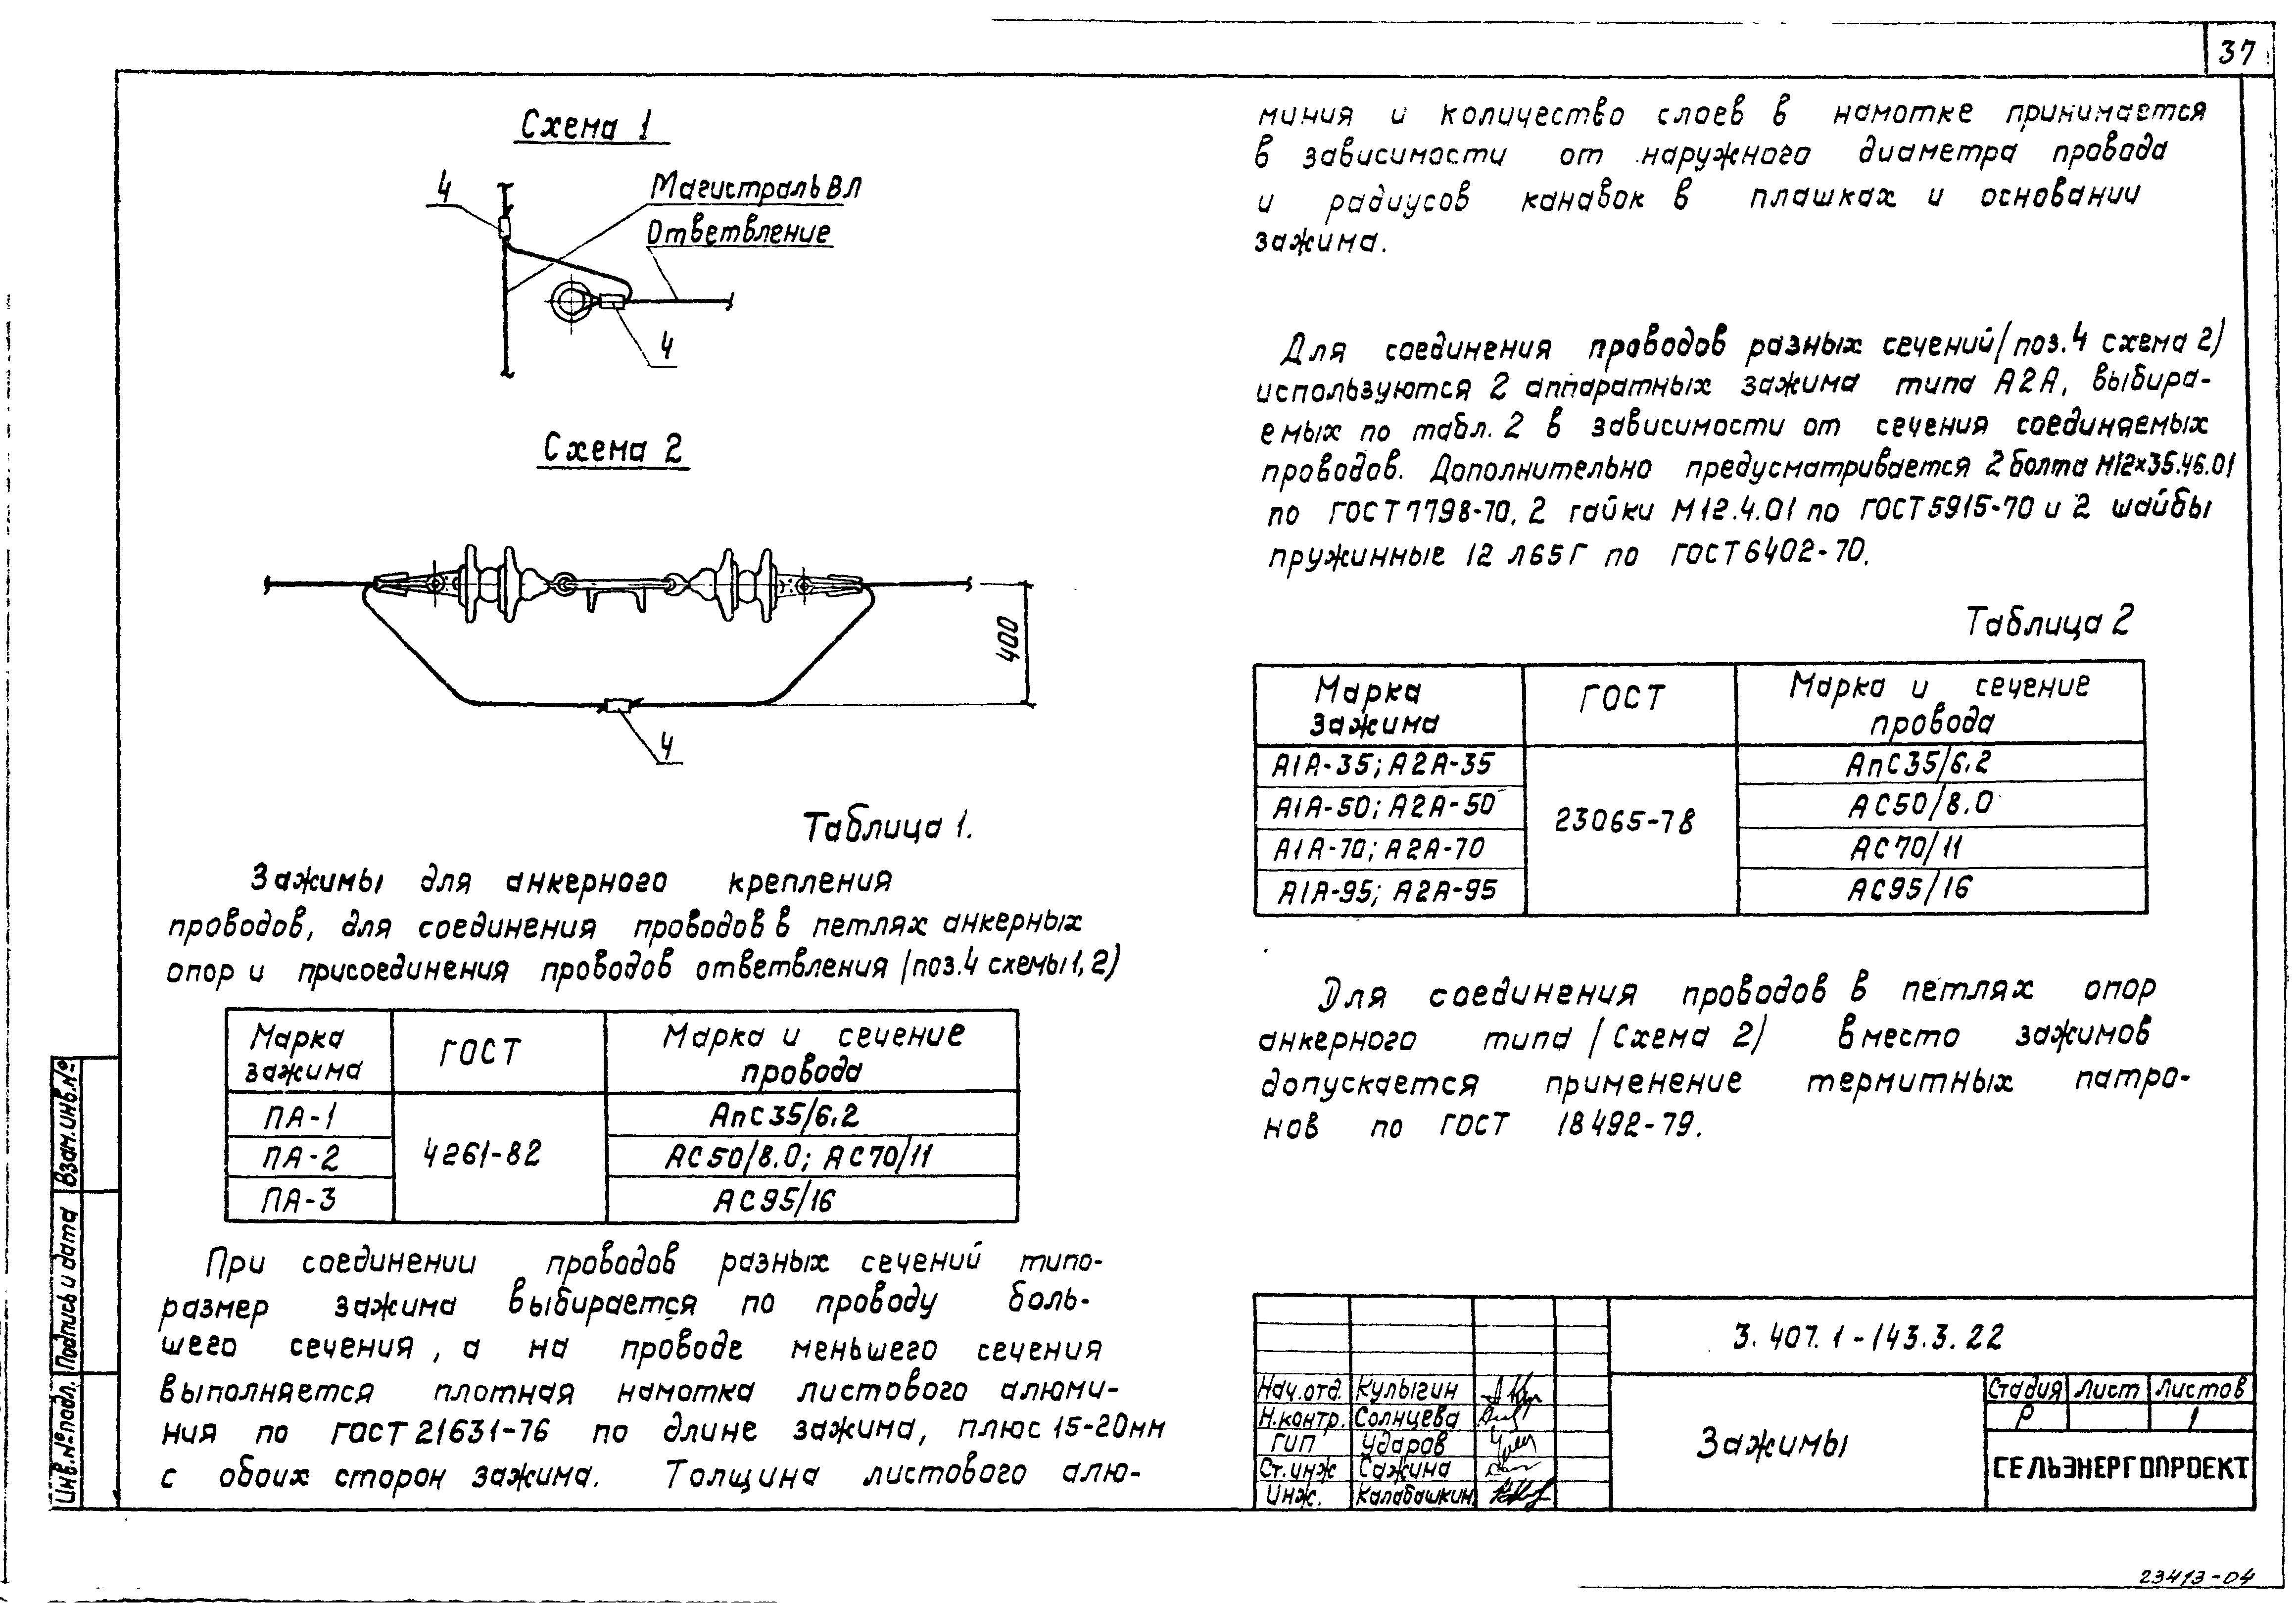 37
Схема 1
4
Магистраль ВЛ
Ответвление
4
Схема 2
400
4
Таблица 1.
Зажимы для анкерного крепления
проводов, для соединения проводов в петлях анкерных
опор и присоединения проводов ответвления (поз.4 схемы 1,2)
Марка зажима | ГОСТ | Марка и сечение провода
ПА-1 | 4261-82 | АпС35/6.2
ПА-2 | АС50/8.0; АС70/11
ПА-3 | АС95/16
При соединении проводов разных сечений типо-
размер зажима выбирается по проводу боль-
шего сечения, а на проводе меньшего сечения
выполняется плотная намотка листового алюми-
ния по ГОСТ 21631-76 по длине зажима, плюс 15-20мм
с обоих сторон зажима. Толщина листового алю-
миния и количество слоев в намотке принимается
в зависимости от наружного диаметра провода
и радиусов канавок в плашках и основании
зажима.
Для соединения проводов разных сечений (поз.4 схема 2)
используются 2 аппаратных зажима типа А2А, выбира-
емых по табл. 2 в зависимости от сечения соединяемых
проводов. Дополнительно предусматривается 2 болта М12×35.46.01
по ГОСТ 7798-70, 2 гайки М12.4.01 по ГОСТ 5915-70 и 2 шайбы
пружинные 12 Л65Г по ГОСТ 6402-70.
Таблица 2
Марка зажима | ГОСТ | Марка и сечение провода
А1А-35; А2А-35 | 23065-78 | АпС35/6.2
А1А-50; А2А-50 | АС50/8.0
А1А-70; А2А-70 | АС70/11
А1А-95; А2А-95 | АС95/16
Для соединения проводов в петлях опор
анкерного типа (Схема 2) вместо зажимов
допускается применение термитных патро-
нов по ГОСТ 18492-79.
Инв.№подл.
Подпись и дата
Взам.инв.№
3.407.1-143.3.22
Нач.отд. Кулыгин
Н.контр. Солнцева
ГИП Ударов
Ст.инж Сажина
Инж. Калабашкин
Зажимы
Стадия Лист Листов
Р 1
СЕЛЬЭНЕРГОПРОЕКТ
23413-04